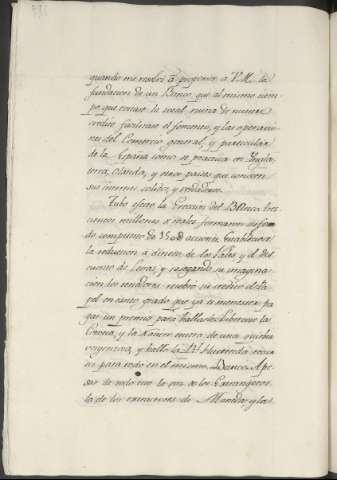 quando me resolví á proponer á V.M. la
fundacion de un Banco, que al mismo tiem-
po que evitase la total ruina de nuestro
credito facilitase el fomento, y las operacio-
nes del Comercio general, y particular
de la España como se practica en Ingla-
terra, Olanda, y otros paises que conocen
sus intereses solidos, y verdaderos.
Tubo efecto la Ereccion del Banco: tres
cientos millones de reales formaron su fon-
do compuesto de 150@ acciones. Establecióse
la reduccion á dinero de los Vales, y el des-
cuento de Letras, y sosegando su imagina-
cion los tenedores recibió su credito el Pa-
pel en tanto grado que ya es menester pa-
gar un premio para hallarle. Libertóse la
Corona, y la Nacion entera de una quiebra
vergonzosa, y halló la Rl. Hacienda recur-
so para todo en el mismo Banco. Ape-
sar de todo esto la voz de los Extrangeros,
la de los extractores de Moneda, y las